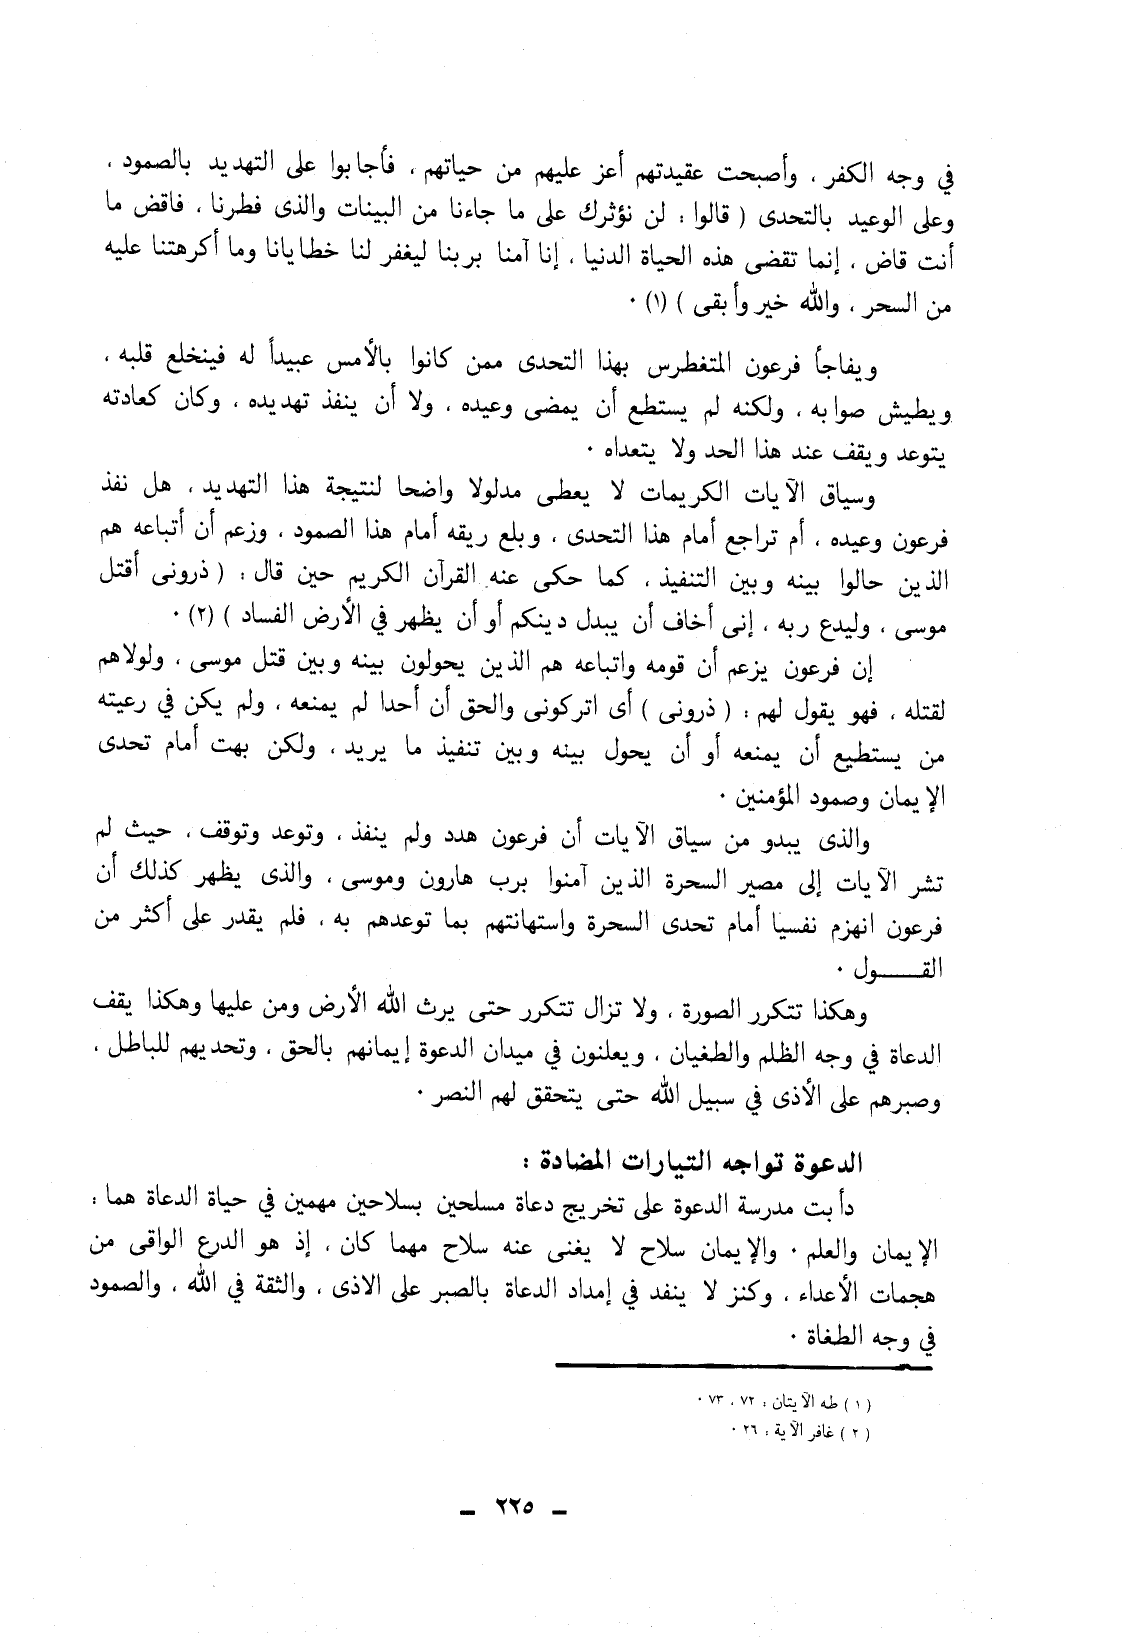 في وجه الكفر ، وأصبحت عقيدتهم أعز عليهم من حياتهم ، فأجابوا على التهديد بالصمود ،
وعلى الوعيد بالتحدى ( قالوا : لن نؤثرك على ما جاءنا من البينات والذى فطرنا ، فاقض ما
أنت قاض ، إنما تقضى هذه الحياة الدنيا ، إنا آمنا بربنا ليغفر لنا خطايانا وما أكرهتنا عليه
من السحر ، والله خير وأبقى ) (١) ٠
ويفاجأ فرعون المتغطرس بهذا التحدى ممن كانوا بالأمس عبيداً له فينخلع قلبه ،
ويطيش صوابه ، ولكنه لم يستطع أن يمضى وعيده ، ولا أن ينفذ تهديده ، وكان كعادته
يتوعد ويقف عند هذا الحد ولا يتعداه ٠
وسياق الآيات الكريمات لا يعطى مدلولا واضحا لنتيجة هذا التهديد ، هل نفذ
فرعون وعيده ، أم تراجع أمام هذا التحدى ، وبلع ريقه أمام هذا الصمود ، وزعم أن أتباعه هم
الذين حالوا بينه وبين التنفيذ ، كما حكى عنه القرآن الكريم حين قال : ( ذرونى أقتل
موسى ، وليدع ربه ، إنى أخاف أن يبدل دينكم أو أن يظهر في الأرض الفساد ) (٢) ٠
إن فرعون يزعم أن قومه واتباعه هم الذين يحولون بينه وبين قتل موسى ، ولولاهم
لقتله ، فهو يقول لهم : ( ذرونى ) أى اتركونى والحق أن أحدا لم يمنعه ، ولم يكن في رعيته
من يستطيع أن يمنعه أو أن يحول بينه وبين تنفيذ ما يريد ، ولكن بهت أمام تحدى
الإيمان وصمود المؤمنين ٠
والذى يبدو من سياق الآيات أن فرعون هدد ولم ينفذ ، وتوعد وتوقف ، حيث لم
تشر الآيات إلى مصير السحرة الذين آمنوا برب هارون وموسى ، والذى يظهر كذلك أن
فرعون انهزم نفسيا أمام تحدى السحرة واستهانتهم بما توعدهم به ، فلم يقدر على أكثر من
القـــــول ٠
وهكذا تتكرر الصورة ، ولا تزال تتكرر حتى يرث الله الأرض ومن عليها وهكذا يقف
الدعاة في وجه الظلم والطغيان ، ويعلنون في ميدان الدعوة إيمانهم بالحق ، وتحديهم للباطل ،
وصبرهم على الأذى في سبيل الله حتى يتحقق لهم النصر ٠
الدعوة تواجه التيارات المضادة :
دأبت مدرسة الدعوة على تخريج دعاة مسلحين بسلاحين مهمين في حياة الدعاة هما :
الإيمان والعلم ٠ والإيمان سلاح لا يغنى عنه سلاح مهما كان ، إذ هو الدرع الواقى من
هجمات الأعداء ، وكنز لا ينفد في إمداد الدعاة بالصبر على الاذى ، والثقة في الله ، والصمود
في وجه الطغاة ٠
( ١ ) طه الآيتان : ٧٢ ، ٧٣ ٠
( ٢ ) غافر الآية : ٢٦ ٠
ـ ٢٢٥ ـ